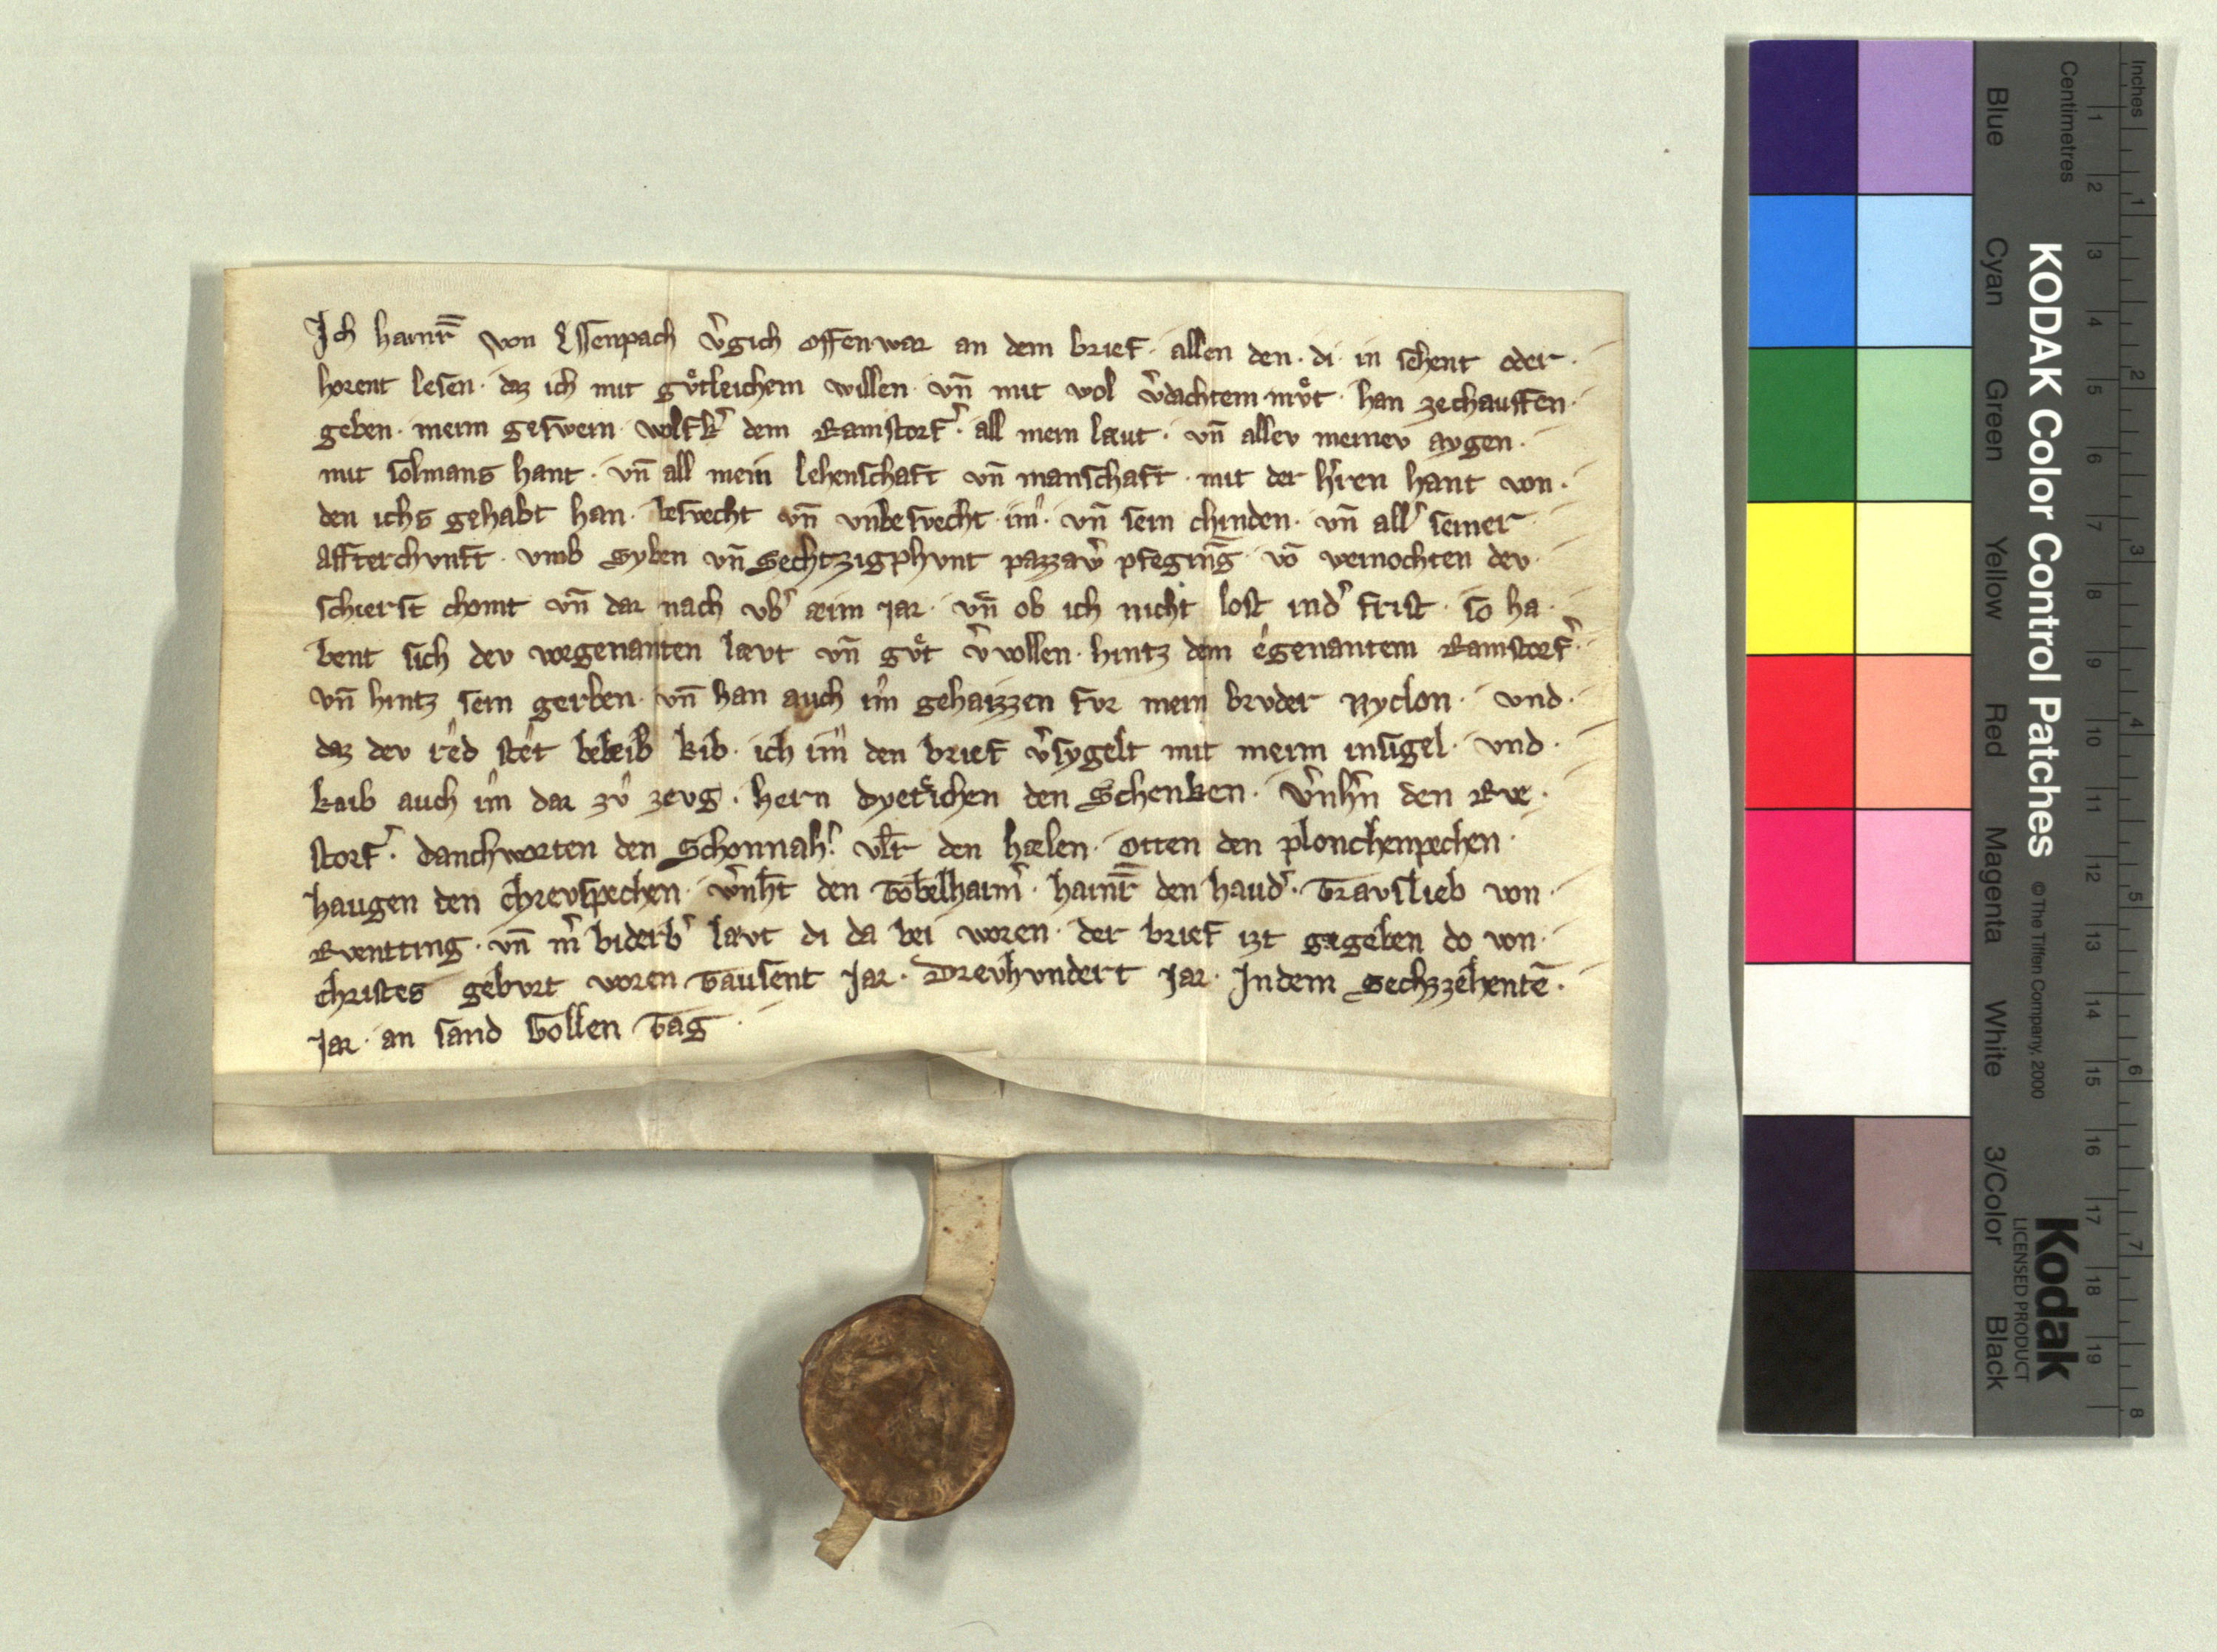 Ich hainr̄ von Ussenpach v͛gich offenwar an dem brief · allen den · di · in sehent oder ·
horent lesen · daz ich mit gůtleichem willen · vn̄ mit wol v͛dachtem · můt · han zechauffen ·
geben · meim geswein · wolfk͛ dem Ramstorf͛ · all mein læut · vn̄ allev meinev aygen ·
mit solmans hant · vn̄ all mein lehenschaft vn̄ manschaft · mit der h͛ren hant von ·
den ichs gehabt han · besvecht vn̄ vnbesvecht · im · vn̄ sein chinden · vn̄ all͛ seiner
affterchvnft · vmb Syben vn̄ Sechtzig phvnt pazzaw͛ pfeginḡ · vō weinochten dev ·
schierst chomt vn̄ dar nach vb͛ æim jar · vn̄ ob ich nicht lost ind͛ frist · so ha ·
bent sich dev vorgenanten lævt vn̄ gůt v͛vollen · hintz dem egenantem Ramstorf͛ ·
vn̄ hintz sein gerben · vn̄ han auch im gehaizzen fvr mein brvder Nyclon · vnd ·
daz dev red stet beleib kib · ich im den brief v͛sygelt mit meim insigel · vnd ·
kaib auch im dar zv zevg · hern Dyetrichen den Schenken · v͛nh͛n den Rve ·
storf͛ · danchworten den Schonnah͛ · vlr̄ den hælen · Otten den plonchenpechen ·
haugen den chrevspechen · w͛nh͛t den Tobelhaim͛ · hainr̄ den haud͛ · Travslieb von ·
Rventting · vn̄ m͛ biderb͛ lævt di da bei woren · der brief ist gegeben do von ·
Christes gebvrt woren Tausent Jar · Drevhvndert jar · Indem Sechzzehentē ·
jar · an sand Tollen Tag ·
KODAK Color Control Patches
© The Tiffen Company, 2000
Kodak
LICENSED PRODUCT
Blue Cyan Green Yellow Red Magenta White 3/Color Black
Inches 1 2 3 4 5 6 7 8
Centimetres 1 2 3 4 5 6 7 8 9 10 11 12 13 14 15 16 17 18 19